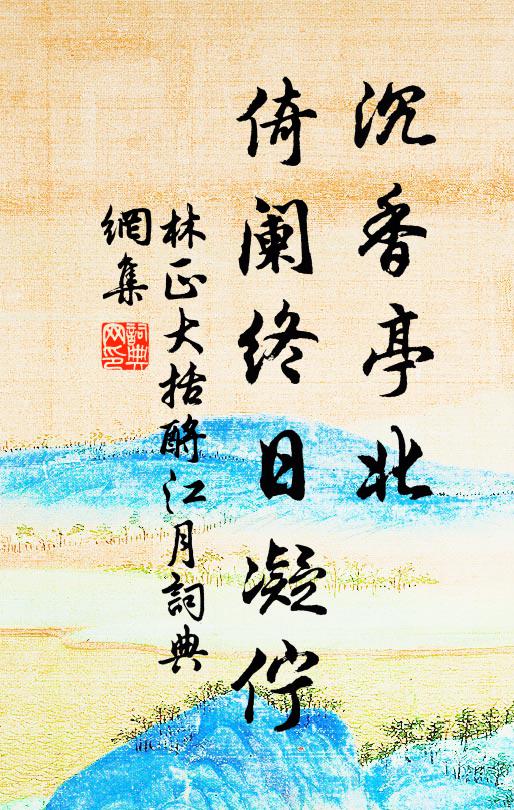 沉香亭北
倚阑终日凝伫
林正大括酹江月詞典
網集
詞典
网印